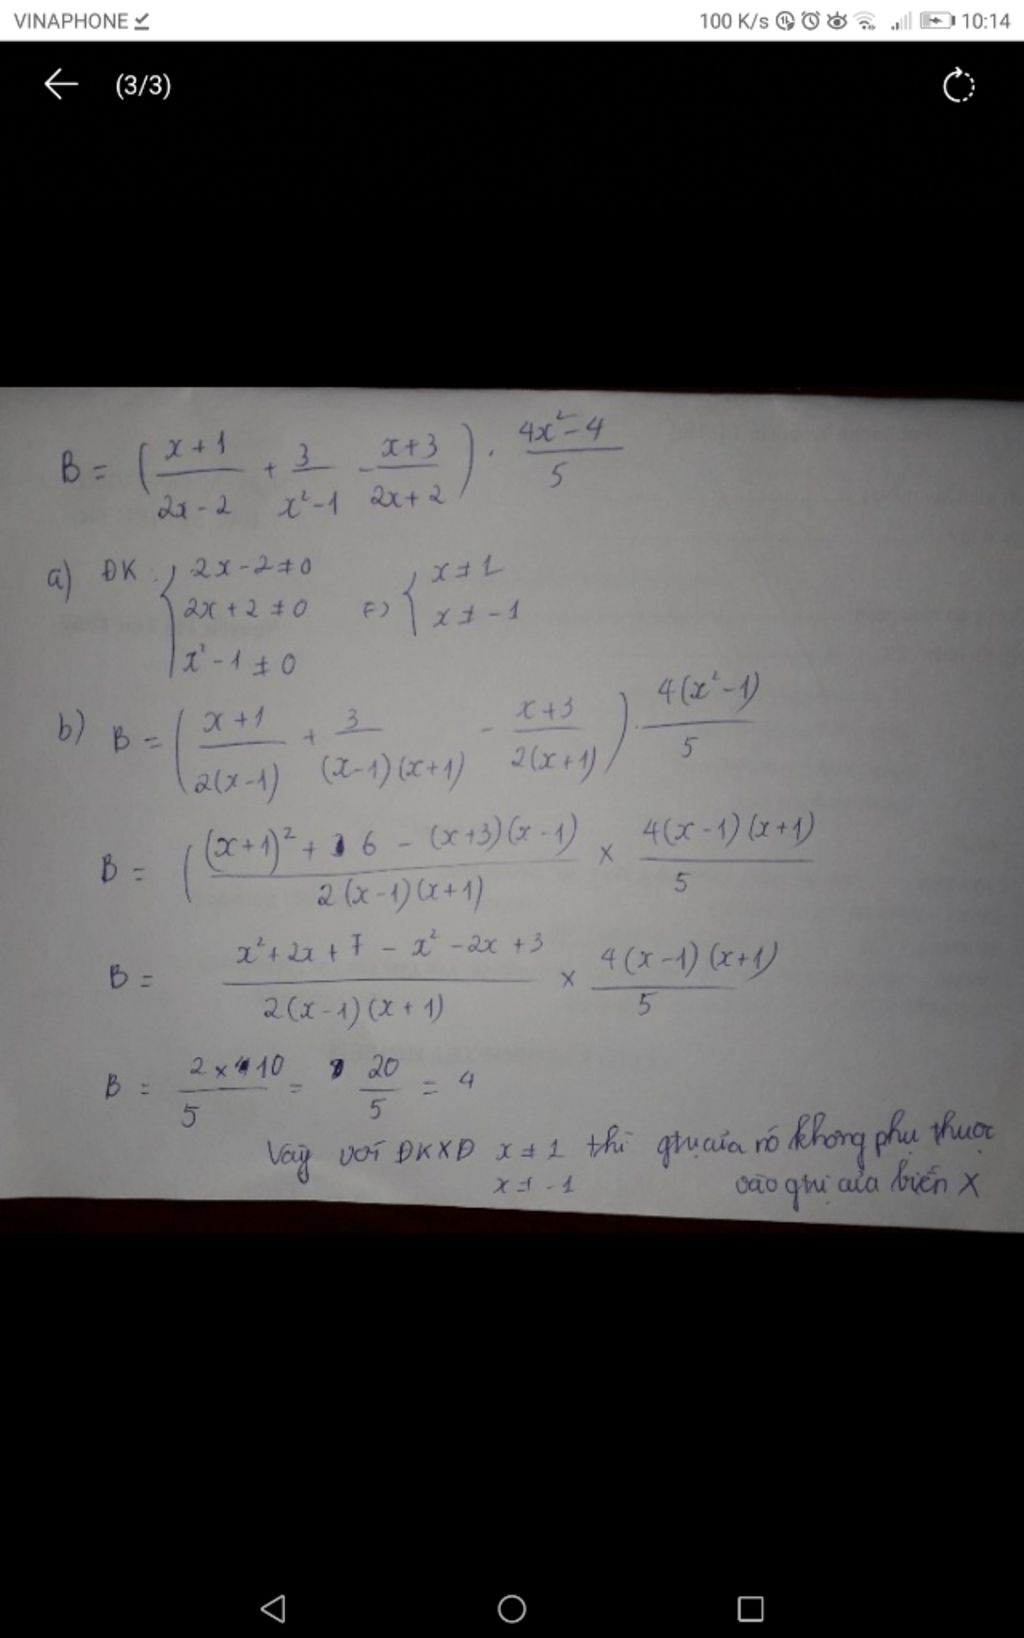 VINAPHONE 100 K/s 10:14
(3/3)
B = (x+1/2x-2 + 3/x²-1 - x+3/2x+2) . 4x²-4/5
a) ĐK : { 2x-2≠0 ⇔ { x≠1
2x+2≠0 x≠-1
x²-1≠0
b) B = (x+1/2(x-1) + 3/(x-1)(x+1) - x+3/2(x+1)) . 4(x²-1)/5
B = ((x+1)²+6-(x+3)(x-1)/2(x-1)(x+1) × 4(x-1)(x+1)/5
B = x²+2x+7-x²-2x+3/2(x-1)(x+1) × 4(x-1)(x+1)/5
B = 2×10/5 = 20/5 = 4
Vậy với ĐKXĐ x≠1 thì gtrị của nó không phụ thuộc
x≠-1 vào gtrị của biến x